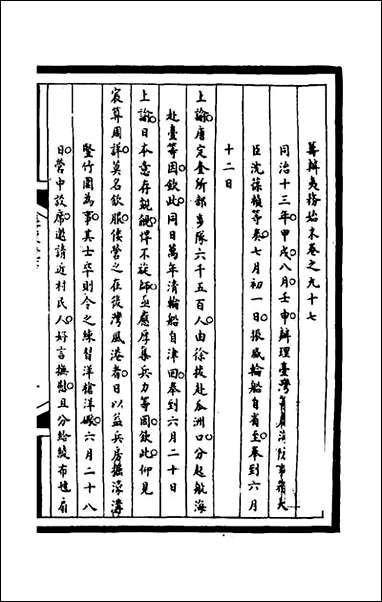 籌辦夷務始末卷之九十七
同治十三年甲戌八月壬申辦理臺灣等處海防事務大
臣沈葆楨等奏七月初一日振威輪船自省至奉到六月
十二日
上諭唐定奎所部步隊六千五百人由徐拔赴瓜洲口分起航海
赴臺等因欽此同日萬年清輪船自津回奉到六月二十日
上諭日本意存覬覦悍不旋師亟應厚集兵力等因欽此仰見
宸算周詳莫名欽服倭營之在後灣風港者日以益兵房掘深溝
堅竹圍為事其士卒則令之練習洋槍洋礮六月二十八
日營中設席邀請近村民人好言撫慰且分給綾布摺扇